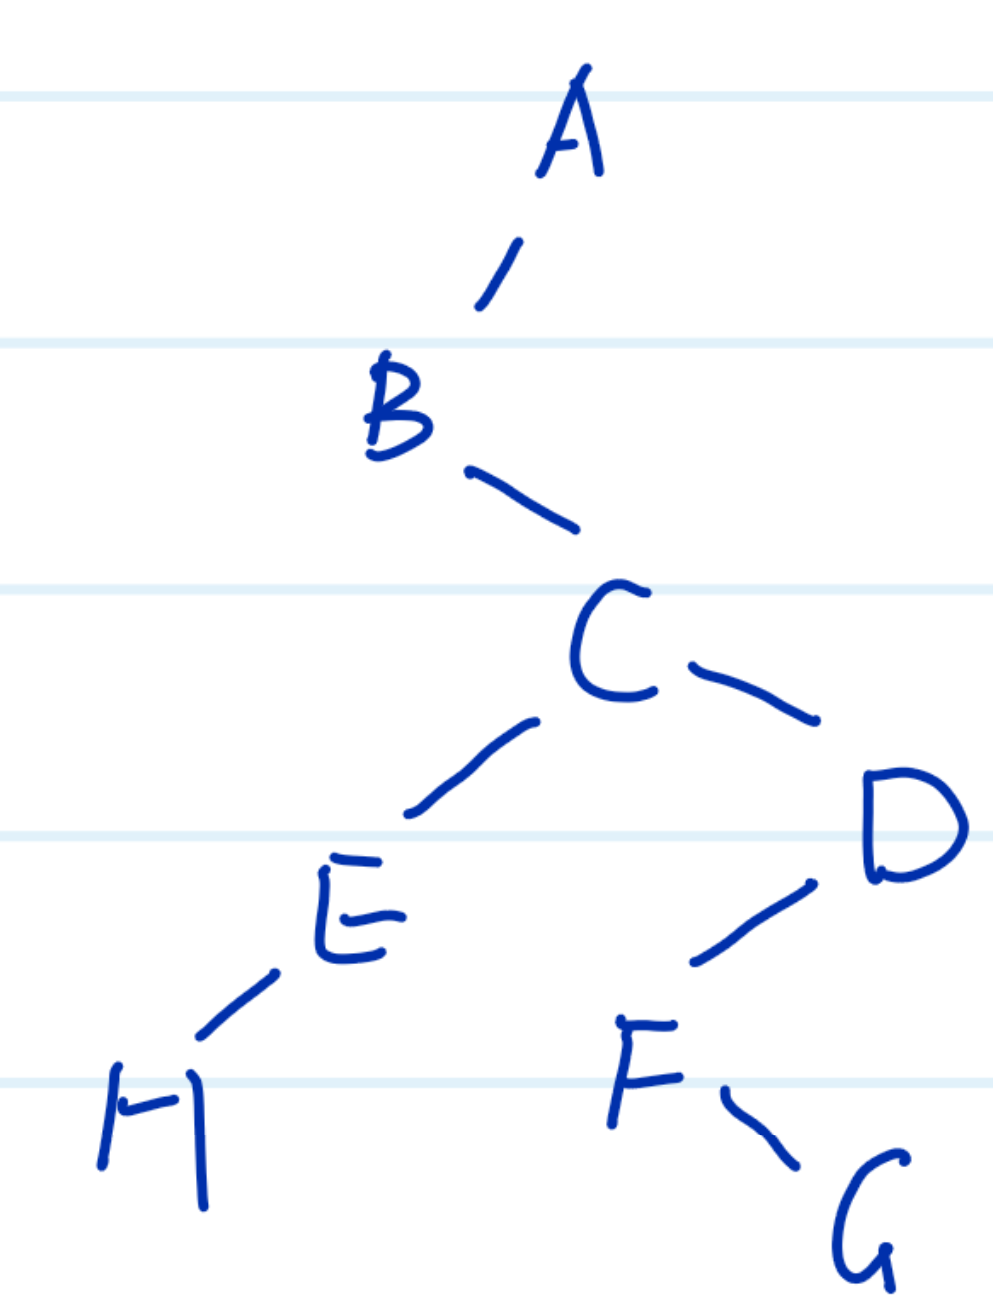 A
B
C
D
E
F
H
G